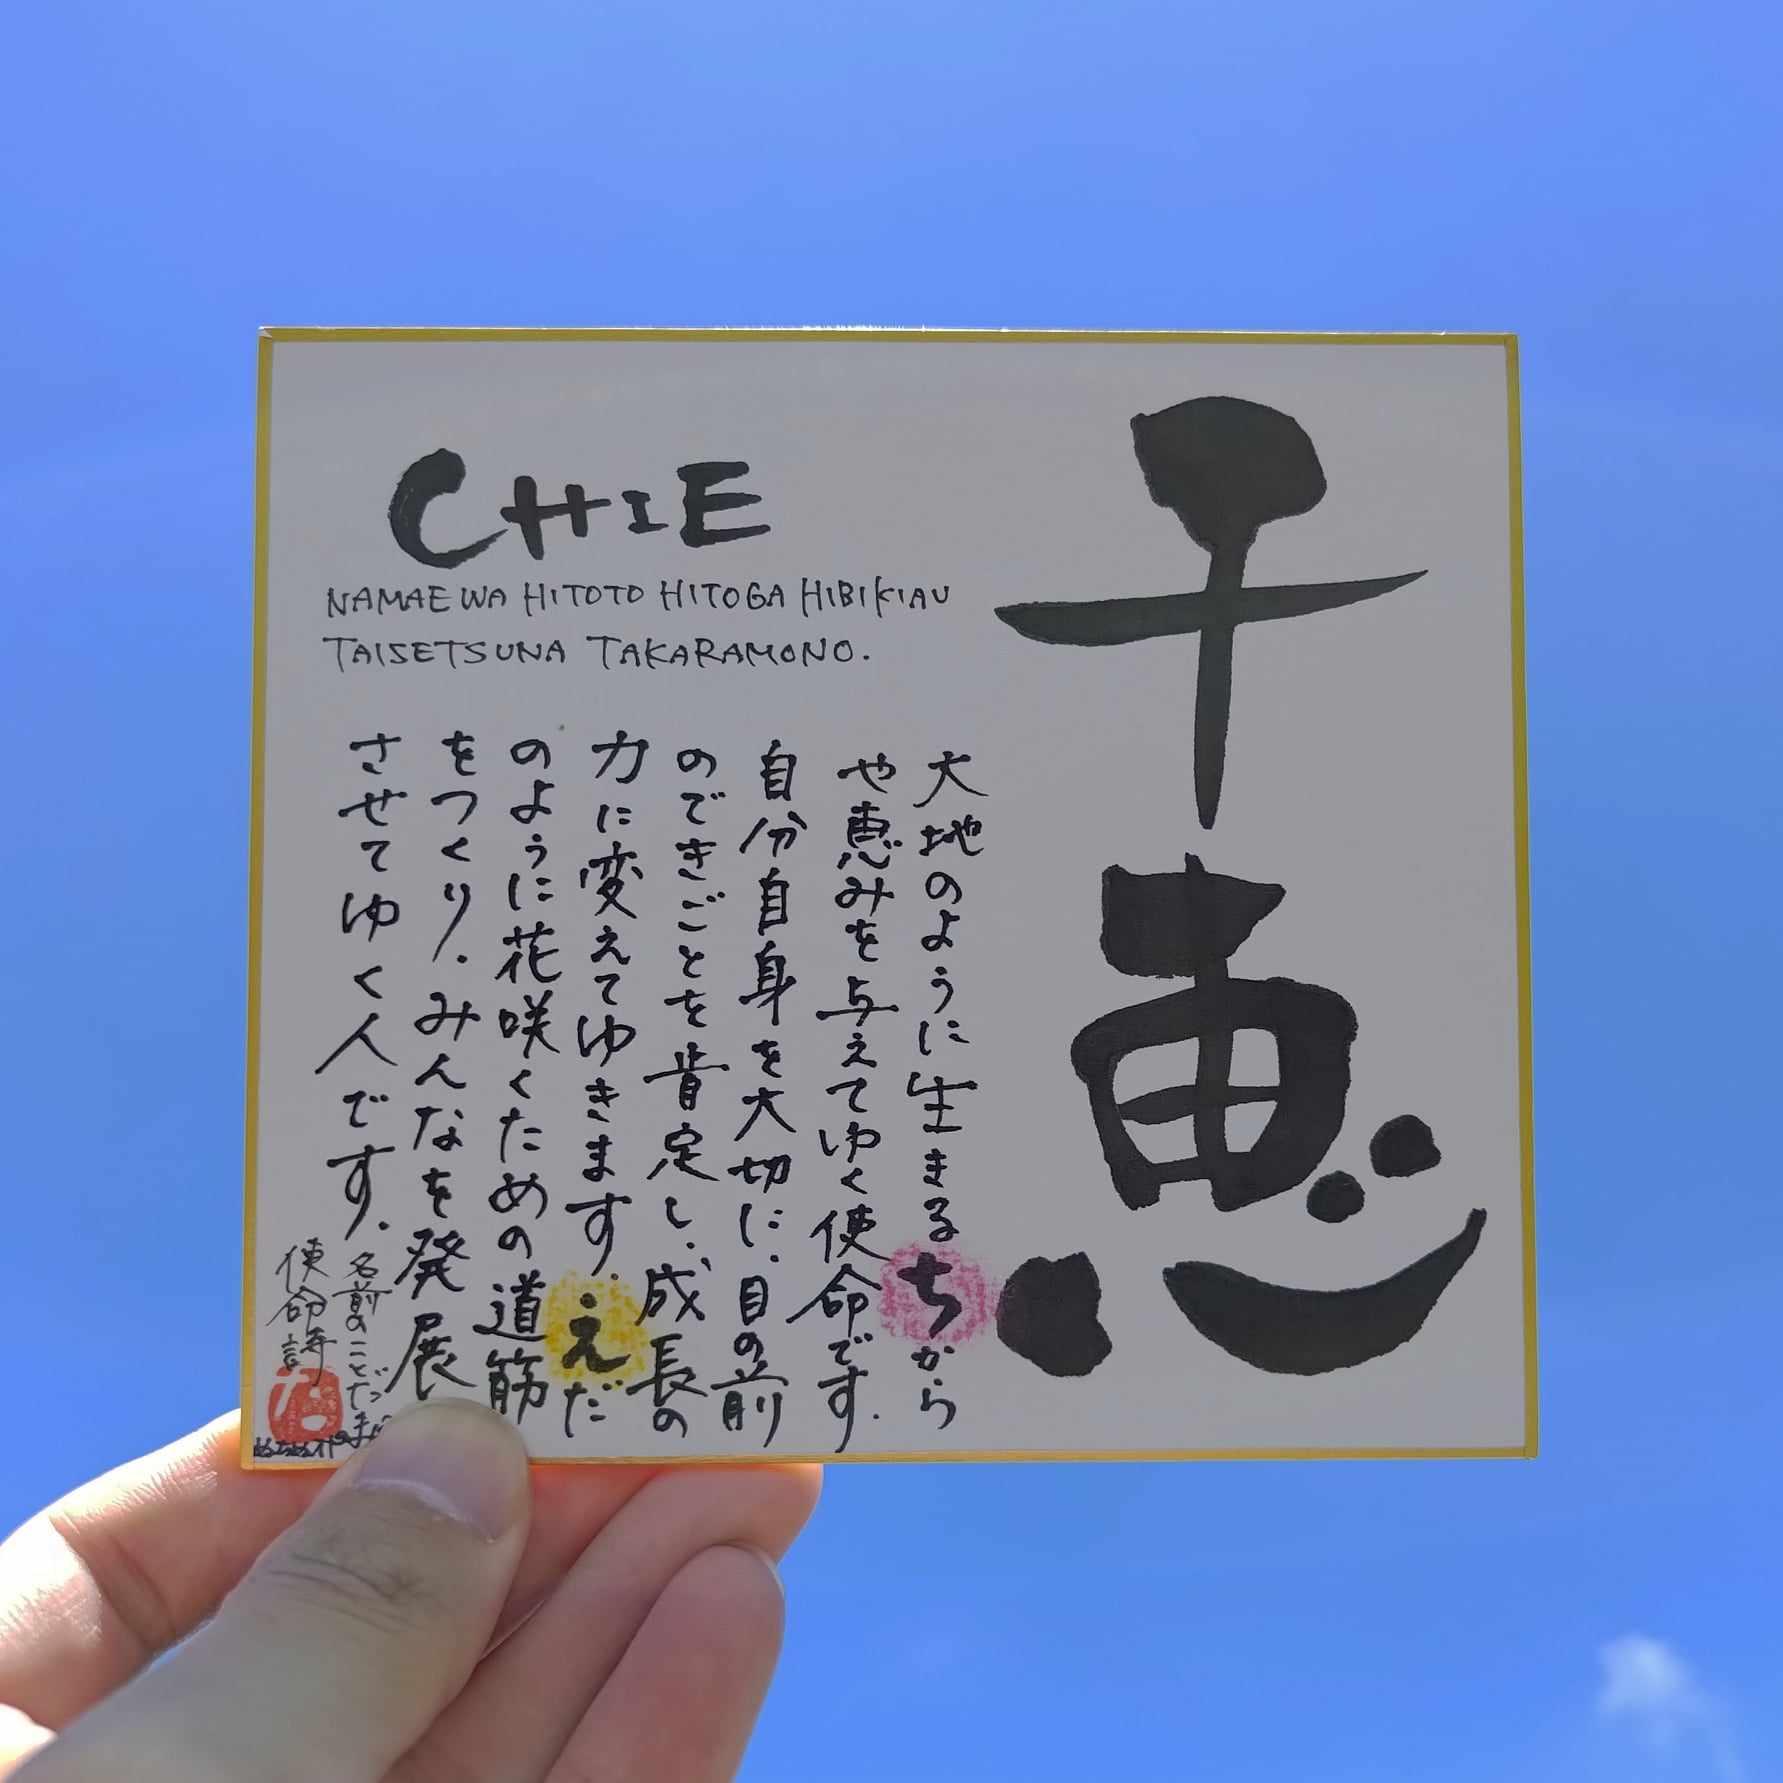 千恵
CHIE
NAMAE WA HITOTO HITOGA HIBIKIAU
TAISETSUNA TAKARAMONO.
大地のように生きるちから
や恵みを与えてゆく使命です.
自分自身を大切に.目の前
のできごとを肯定し.成長の
力に変えてゆきます.えだ
のように花咲くための道筋
をつくり.みんなを発展
させてゆく人です.
名前のことだま
使命詩